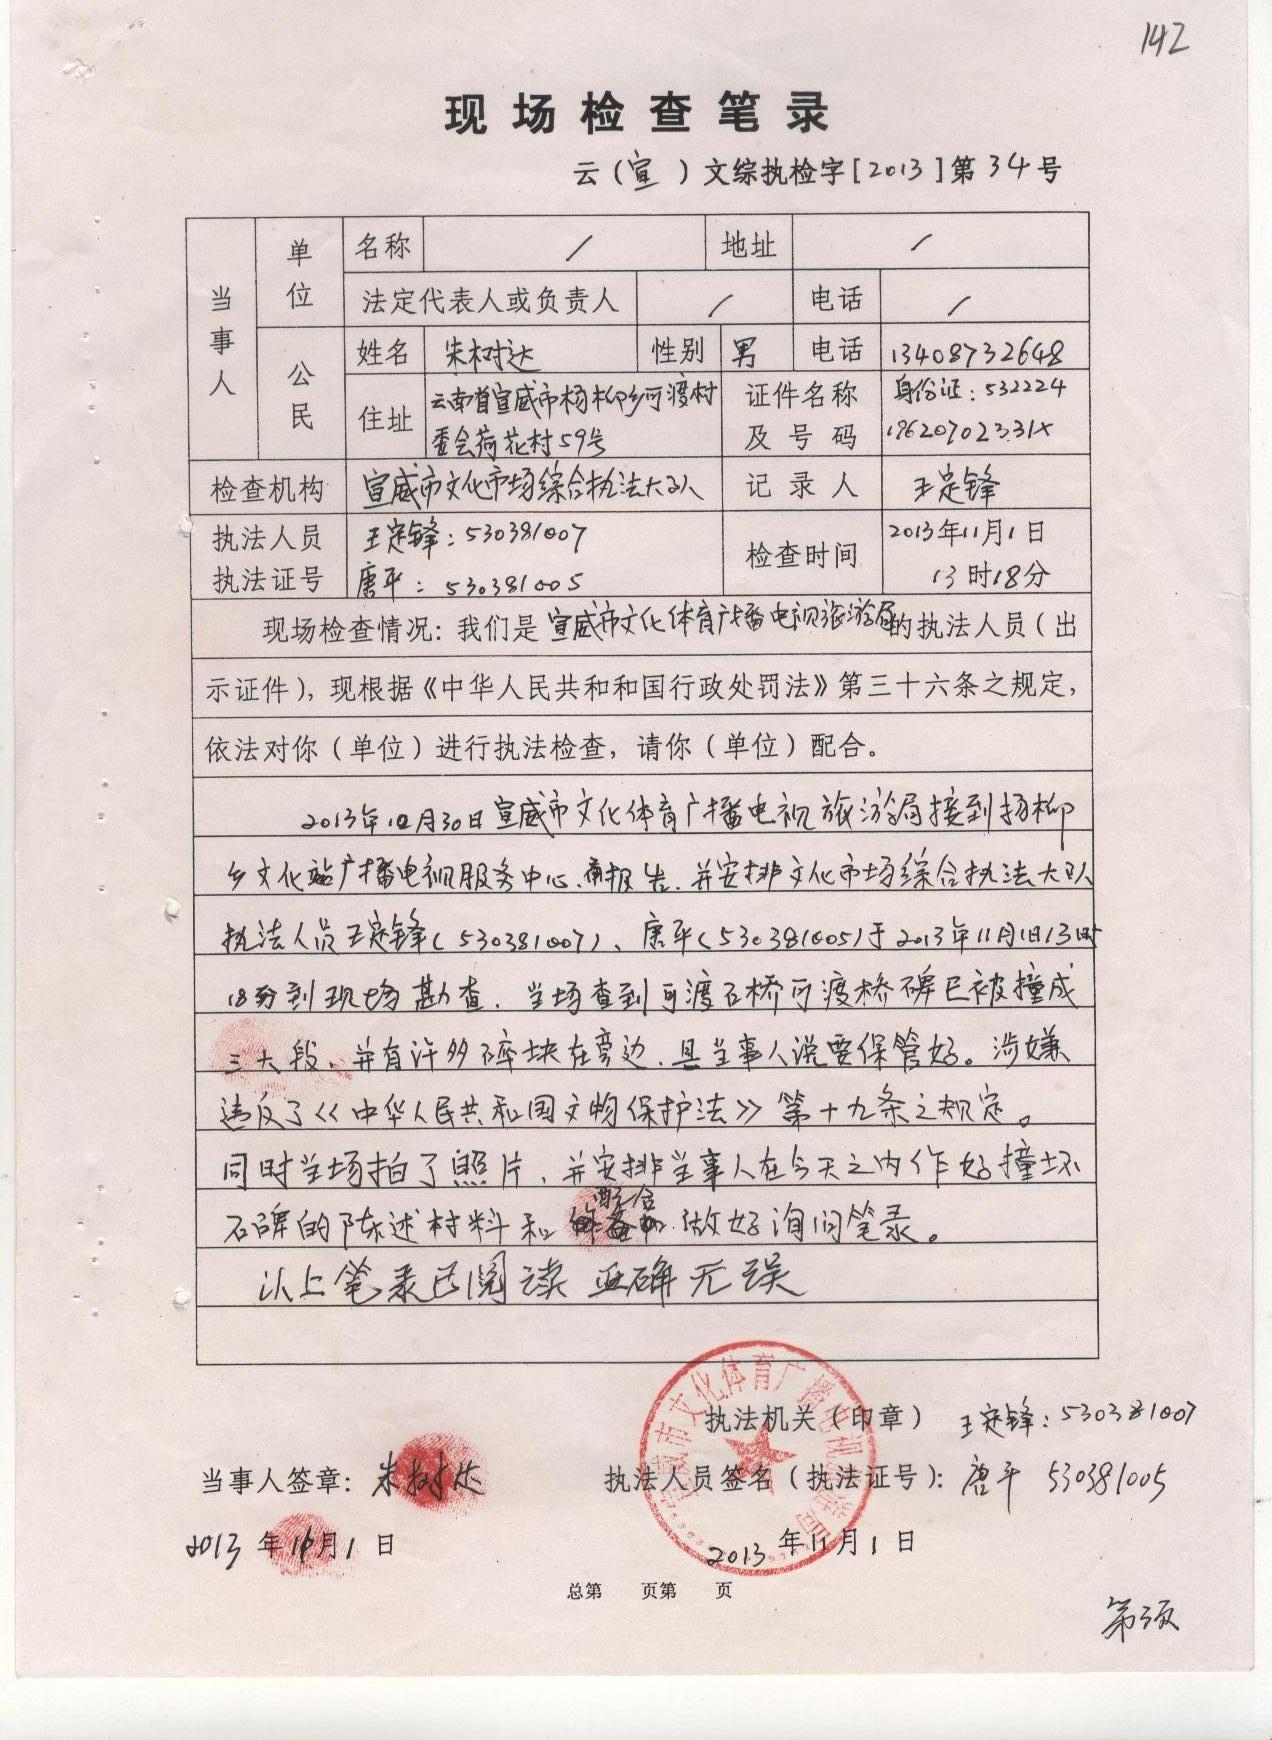 142
现场检查笔录
云(宣)文综执检字[2013]第34号
当事人 单位 名称 / 地址 /
法定代表人或负责人 / 电话 /
公民 姓名 朱树达 性别 男 电话 13408732648
住址 云南省宣威市杨柳乡可渡村
委会荷花村59号
证件名称
及号码
身份证:532224
19620702331X
检查机构 宣威市文化市场综合执法大队 记录人 王定锋
执法人员 王定锋:530381007
执法证号 唐平:530381005
检查时间 2013年11月1日
13时18分
现场检查情况:我们是宣威市文化体育广播电视旅游局的执法人员(出
示证件),现根据《中华人民共和和国行政处罚法》第三十六条之规定,
依法对你(单位)进行执法检查,请你(单位)配合。
2013年10月30日宣威市文化体育广播电视旅游局接到杨柳
乡文化站广播电视服务中心报告,并安排文化市场综合执法大队
执法人员王定锋(530381007)、唐平(530381005)于2013年11月1日13时
18分到现场勘查,当场查到可渡石桥可渡桥碑已被撞成
三大段,并有许多碎块在旁边,具当事人说要保管好。涉嫌
违反了《中华人民共和国文物保护法》第十九条之规定。
同时当场拍了照片,并安排当事人在今天之内作好撞坏
石碑的陈述材料和配合做好询问笔录。
以上笔录已阅读 正确无误
执法机关(印章) 王定锋:530381007
当事人签章:朱树达 执法人员签名(执法证号):唐平 530381005
2013年11月1日 2013年11月1日
总第 页第 页